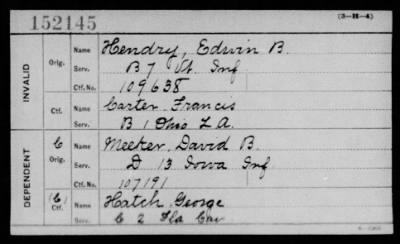 152145
(3-H-4)
INVALID
Orig.
Name Hendry, Edwin B.
Serv. B 7 Vt. Inf
Ctf. No. 109638
Ctf.
Name Carter Francis
Serv. B 1 Ohio L A.
DEPENDENT
C
Orig.
Name Meeker, David B.
Serv. D 13 Iowa Inf
Ctf. No. 107191
(C)
Ctf.
Name Hatch George
Serv. C 2 Fla Cav